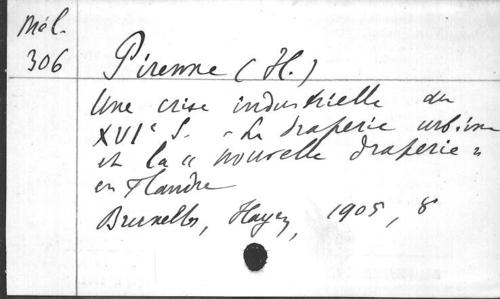 Mél.
306
Pirenne (H.)
Une crise industrielle au
XVIe S. - La draperie urbaine
et la « nouvelle draperie »
en Flandre
Bruxelles, Hayez, 1905, 8